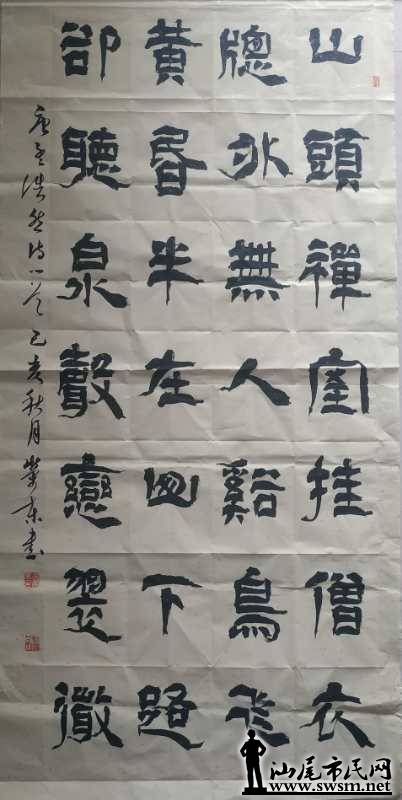 山頭禪室挂僧衣
牕外無人谿鳥飛
黄昏半在山下路
卻聽泉聲戀翠微
唐孟浩然诗一首 己亥秋月 书
汕尾市民网
www.swsm.net